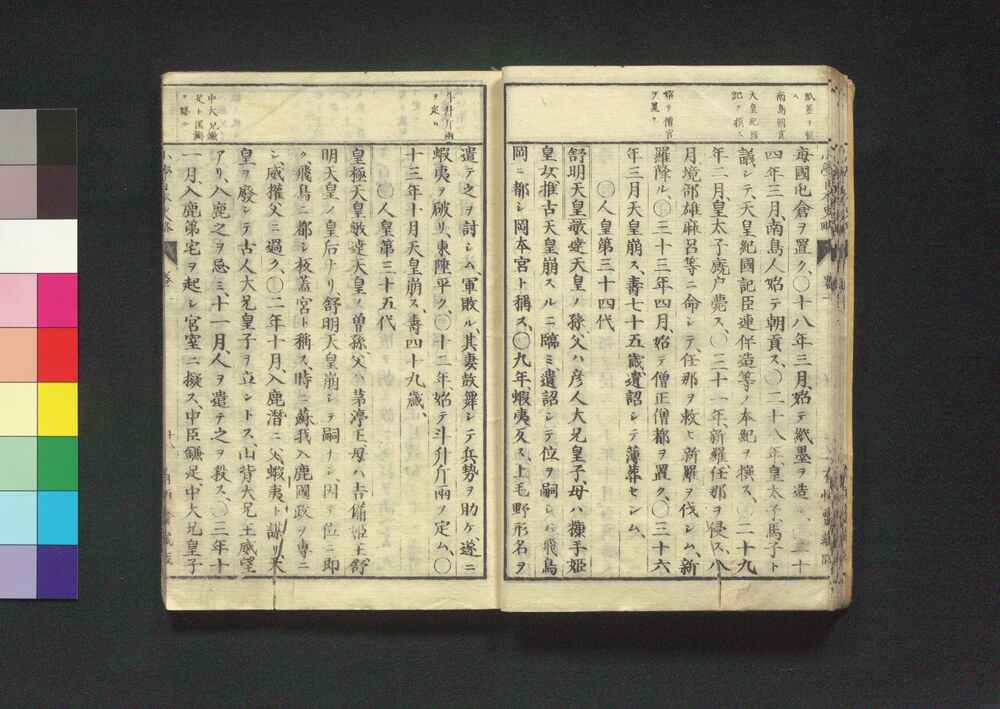 紙墨ヲ製
南島朝貢
天皇紀國
記ヲ撰ス
始テ僧官
ヲ置ク
毎國屯倉ヲ置ク、〇十八年三月、始テ紙墨ヲ造ル、〇二十
四年三月、南島人始テ朝貢ス、〇二十八年皇太子、馬子ト
議シテ天皇紀國記臣連伴造等ノ本紀ヲ撰ス、〇二十九
年二月、皇太子廐户薨ス、〇三十一年、新羅任那ヲ侵ス、八
月、境部雄麻呂等ニ命シテ、任那ヲ救ヒ新羅ヲ伐シム、新
羅降ル、〇三十三年四月、始テ僧正僧都ヲ置ク、〇三十六
年三月天皇崩ス、壽七十五歳、遺詔シテ薄葬セシム、
〇人皇第三十四代
舒明天皇敏達天皇ノ孫父ハ彦人大兄皇子、母ハ糠手姫
皇女推古天皇崩スルニ臨ミ、遺詔シテ位ヲ嗣シム飛鳥
岡ニ都シ岡本宮ト稱ス、〇九年、蝦夷反ス、上毛野形名ヲ
斗升斤兩
ヲ定ム
中大兄鎌
足ト蘇我
遣テ之ヲ討シム、軍敗ル、其妻鼓舞シテ兵勢ヲ助ケ、遂ニ
蝦夷ヲ破リ、東陲平ク、〇十二年、始テ斗升斤兩ヲ定ム、〇
十三年十月天皇崩ス、壽四十九歳、
〇人皇第三十五代
皇極天皇敏達天皇ノ曽孫、父ハ茅渟王、母ハ吉備姫王舒
明天皇ノ皇后ナリ、舒明天皇崩シテ嗣ナシ、因テ位ニ即
ク、飛鳥ニ都シ板蓋宮ト稱ス、時ニ蘇我入鹿國政ヲ專ニ
シ、威權父ニ過ク、〇二年十月、入鹿潜ニ父蝦夷ト謀リ、天
皇ヲ廢シテ古人大兄皇子ヲ立ントス、山背大兄王威望
アリ、入鹿之ヲ忌ミ、十一月、人ヲ遣テ之ヲ殺ス、〇三年十
一月、入鹿第宅ヲ起シ官室ニ擬ス、中臣鎌足、中大兄皇子